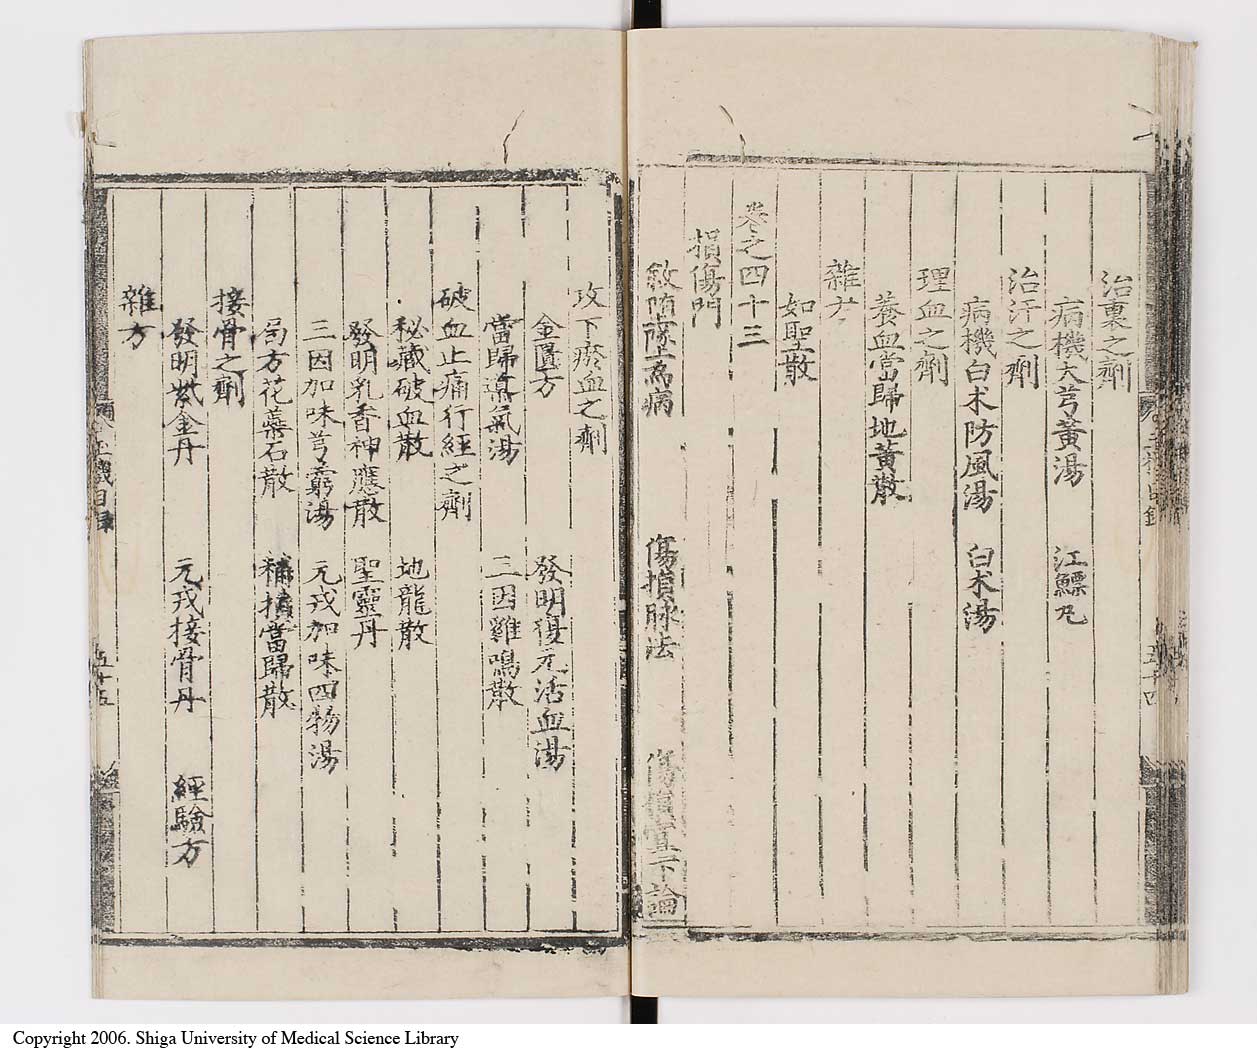 治裏之劑
病機大芎黃湯 江鰾丸
治汗之劑
病機白朮防風湯 白朮湯
理血之劑
養血當歸地黃散
雜方
如聖散
卷之四十三
損傷門
敘墮墜為病 傷損脉法 傷損宜下論
攻下瘀血之劑
金匱方 發明復元活血湯
當歸導氣湯 三因雞鳴散
破血止痛行經之劑
秘藏破血散 地龍散
發明乳香神應散 聖靈丹
三因加味芎藭湯 元戎加味四物湯
局方花蘂石散 補損當歸散
接骨之劑
發明紫金丹 元戎接骨丹 經驗方
雜方
五十五
Copyright 2006. Shiga University of Medical Science Library